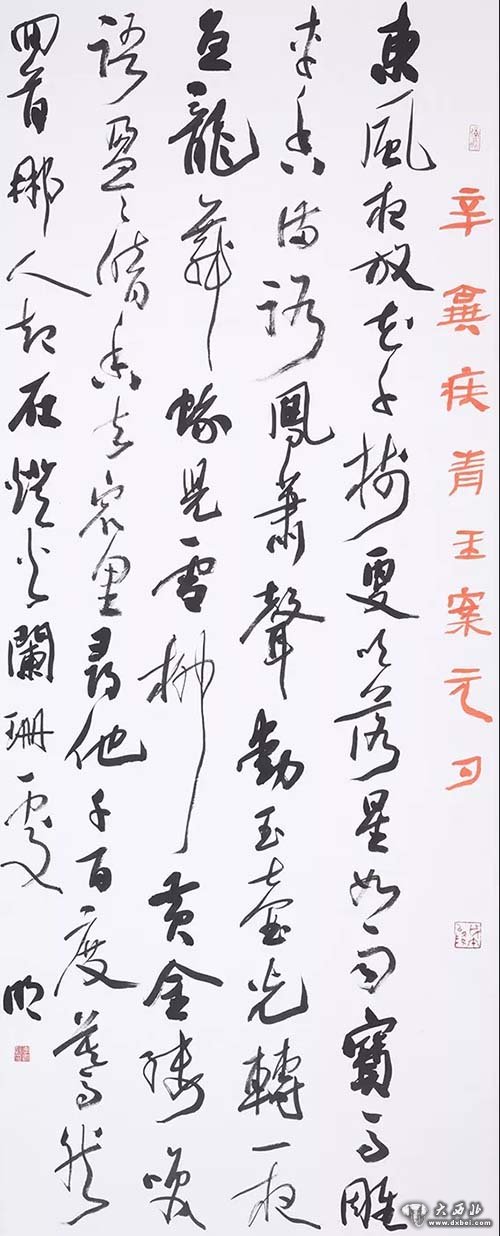 辛棄疾青玉案元夕
東風夜放花千樹更吹落星如雨寶馬雕
車香滿路鳳蕭聲動玉壺光轉一夜
魚龍舞蛾兒雪柳黃金縷笑
語盈々暗香去衆里尋他千百度驀然
回首那人却在燈火闌珊處
明
大西北
www.dxbei.com